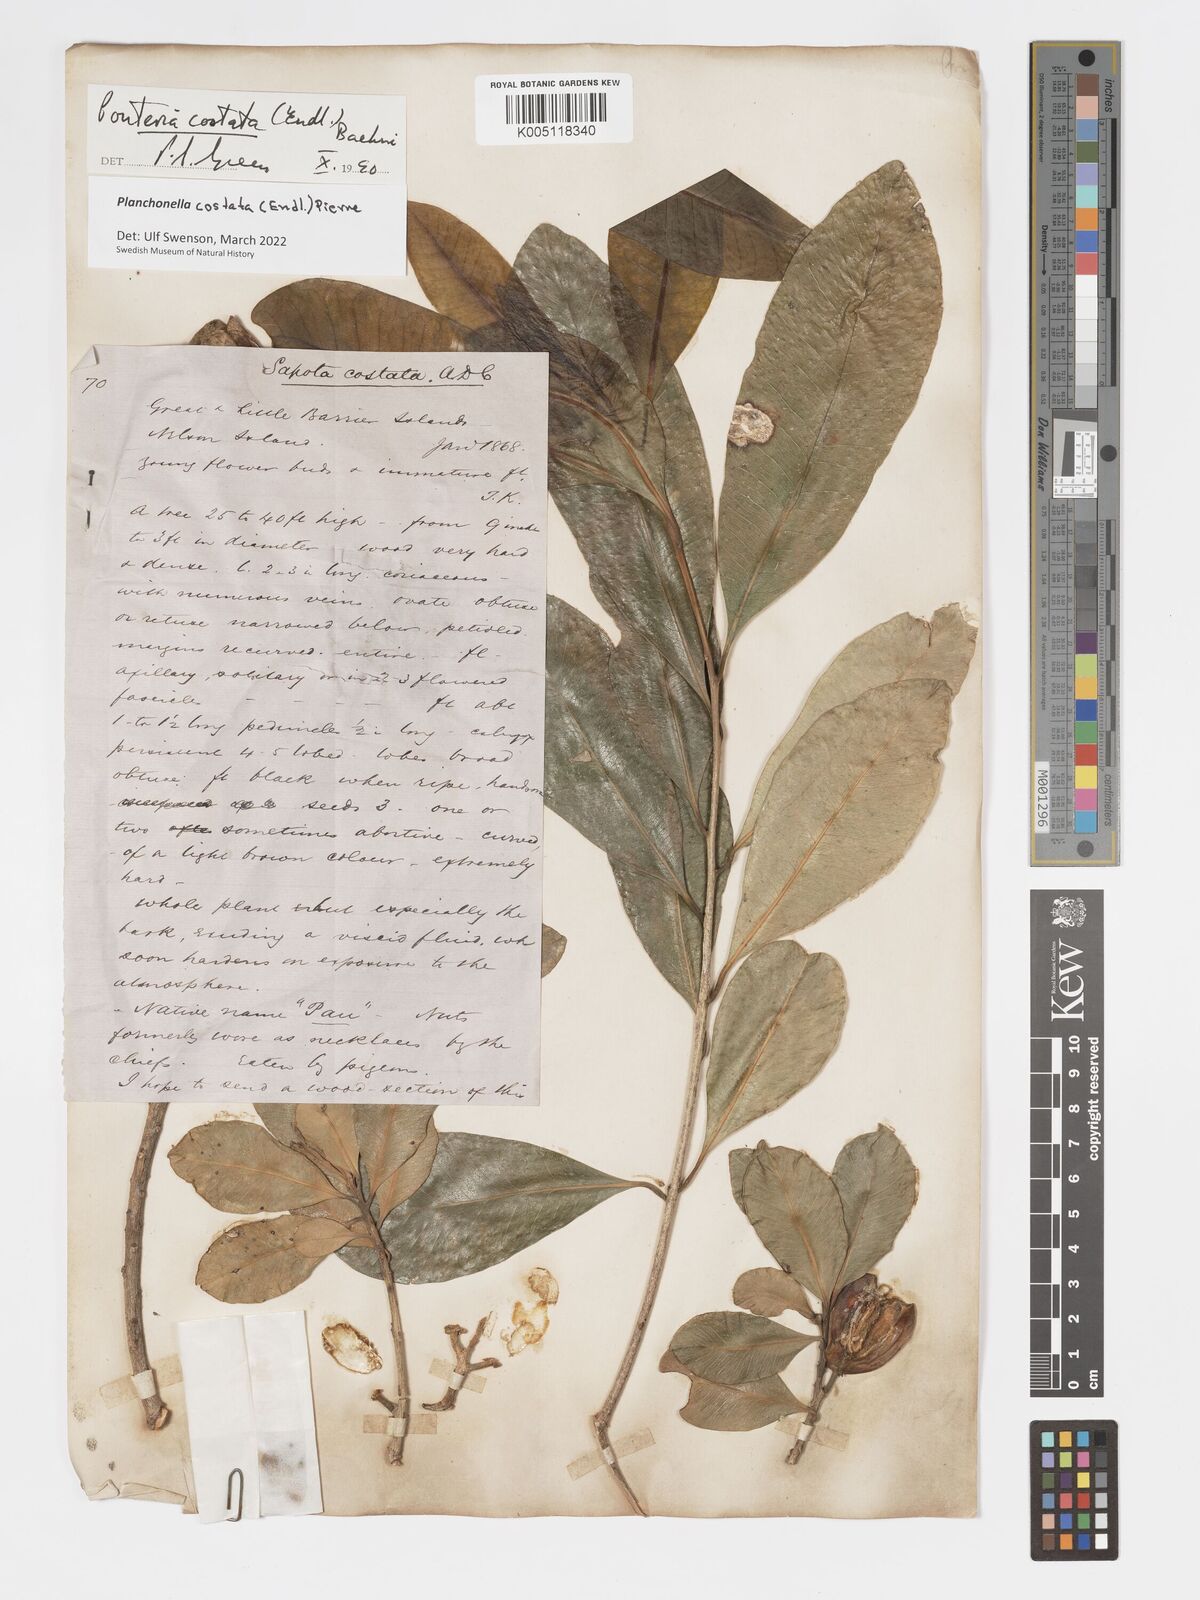 ROYAL BOTANIC GARDENS KEW
K005118340
Pouteria costata (Endl.)
Baehni
DET P.S. Green X. 1990
Planchonella costata (Endl.) Pierre
Det: Ulf Swenson, March 2022
Swedish Museum of Natural History
70
Sapota costata. ADC
Great & Little Barrier Islands
Nelson Island. Jany 1868.
Young flower buds & immature ft.
T.K.
A tree 25 to 40 ft high - from 9 inches
to 3 ft in diameter wood very hard
& dense. l. 2-3 i long. coriaceous -
with numerous veins. ovate obtuse
or retuse narrowed below, petioled.
margins recurved. entire - fl -
axillary, solitary or in 2-3 flowered
fascicles - - - - - ft abt
1 - to 1½ long peduncle ½ i long - calyx
persistent 4-5 lobed lobes broad
obtuse. ft black when ripe, handsome
seeds 3. one or
two sometimes abortive - curved,
of a light brown colour - extremely
hard -
Whole plant but especially the
bark, exuding a viscid fluid, wh
soon hardens on exposure to the
atmosphere.
- Native name "Pau" - Nuts
formerly wore as necklaces by the
chiefs. Eaten by pigeons.
I hope to send a wood-section of this
inches
Density
Don Williams
M001296
Royal Botanic Gardens
Kew
copyright reserved
10
9
8
7
6
5
4
3
2
1
0
cm